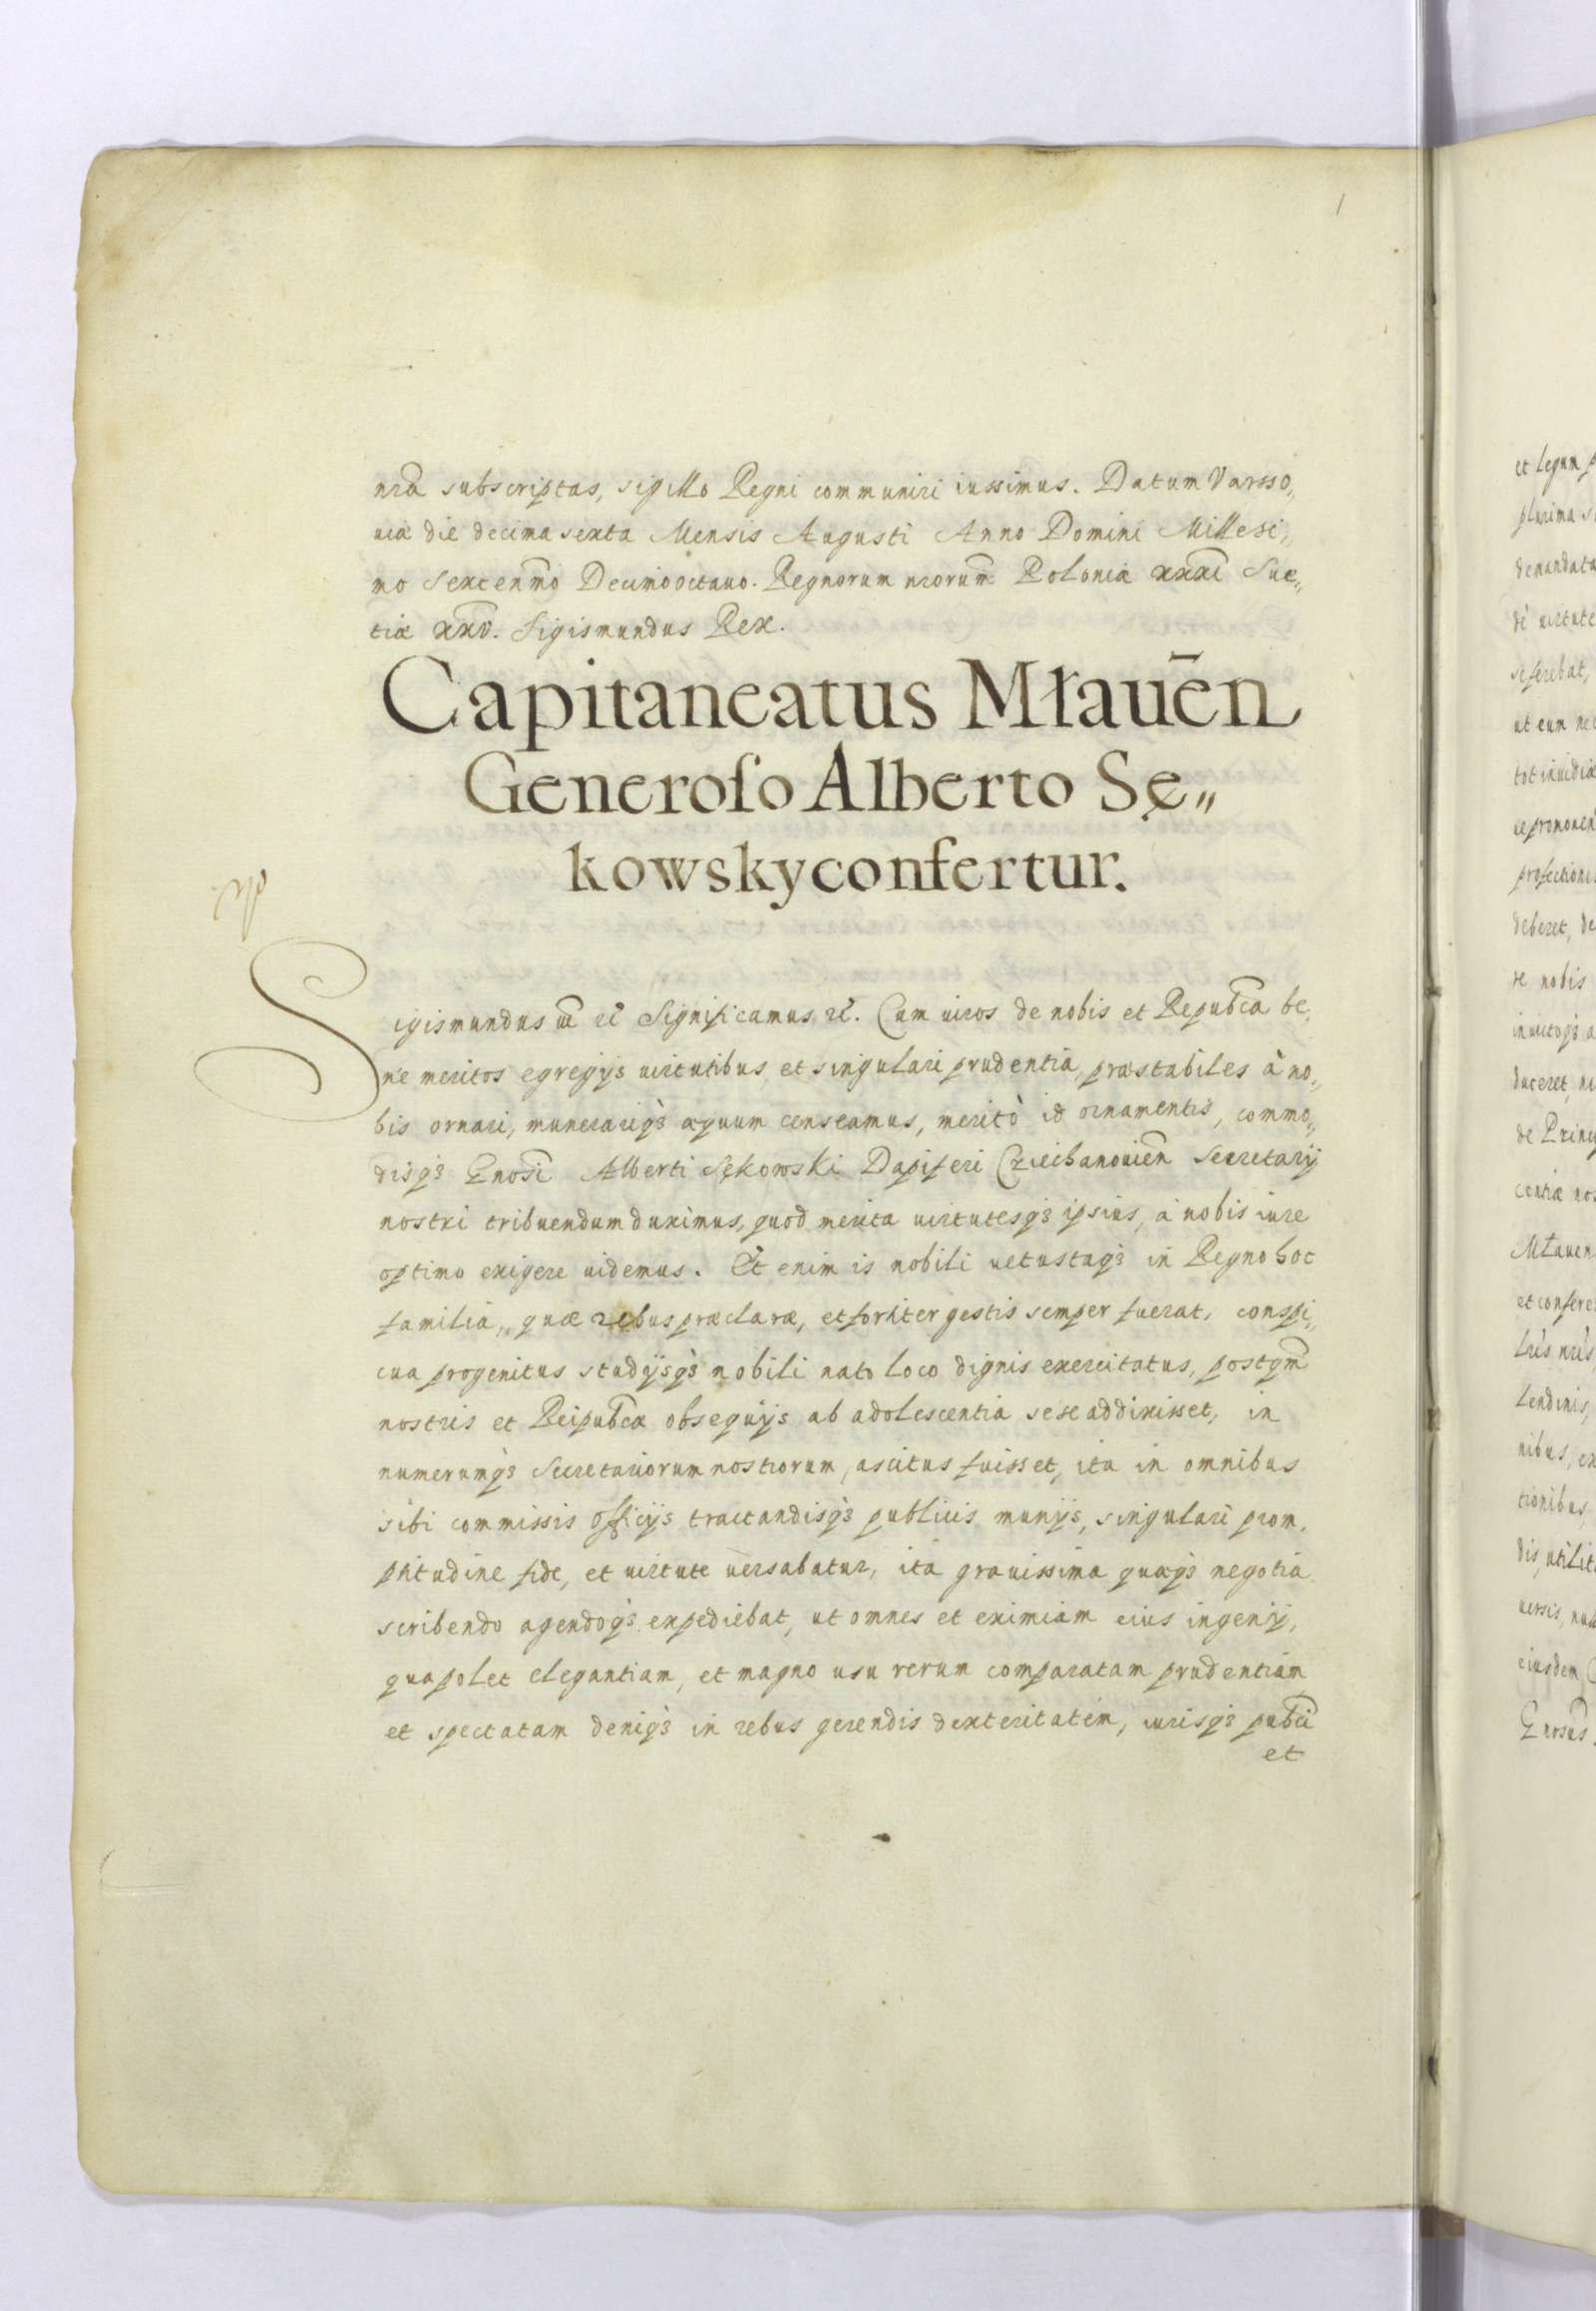 1
nrã subscriptas, sigillo Regni communiri iussimus. Datum Varsso„
uiæ die decima sexta Mensis Augusti Anno Domini Millesi„
mo Sexcenm̃o Decimo octauo. Regnorum nrorum̃ Poloniæ xxxi Sue„
tiæ xxv. Sigismundus Rex.
Capitaneatus Mławēn
Generoſo Alberto Sę„
kowsky confertur.
Sigismundus Significamus Cum uiros de nobis et Republ̃ca be„
nè meritos egregijs uirtutibus et singulari prudentia, præstabiles à no„
bis ornari, munerariq3 æquum censeamus, meritò id ornamentis, commo„
disq3 Gnosi Alberti Sękowski Dapiferi Cziechanouien̄ Secretarij
nostri tribuendum duximus, quod merita uirtutesq3 ipsius, à nobis iure
optimo exigere uidemus. Et enim is nobili uetustaq3 in Regno hoc
familia, quæ rebus præclaræ, et fortiter gestis semper fuerat, conspi„
cua progenitus studijsq3 nobili nato loco dignis exercitatus, postqm̃
nostris et Reipubcæ obsequijs ab adolescentia sese addixisset, in
numerumq3 Secretariorum nostrorum, ascitus fuisset, ita in omnibus
sibi commissis officijs tractandisq3 publicis munijs, singulari prom„
ptitudine fide, et uirtute uersabatur, ita grauissima quæq3 negotia
scribendo agendoq3 expediebat, ut omnes et eximiam eius ingenij,
qua polet elegantiam, et magno usu rerum comparatam prudentiam
et spectatam deniq3 in rebus gerendis dexteritatem, iurisq3 pubci
et
et legum
plurima
demandata
dè uirtute
seferebat,
ut eum
tot inuidiæ
profectioni
deberet, de
re nobis
inuictoq3
duceret,
de Princ
centiæ nos
Mławen
et confere
Lrìs nrìs
Lendinis,
nibus, ex
tionibus
dis, utilit
uersis,
eiusdem
Gnosus